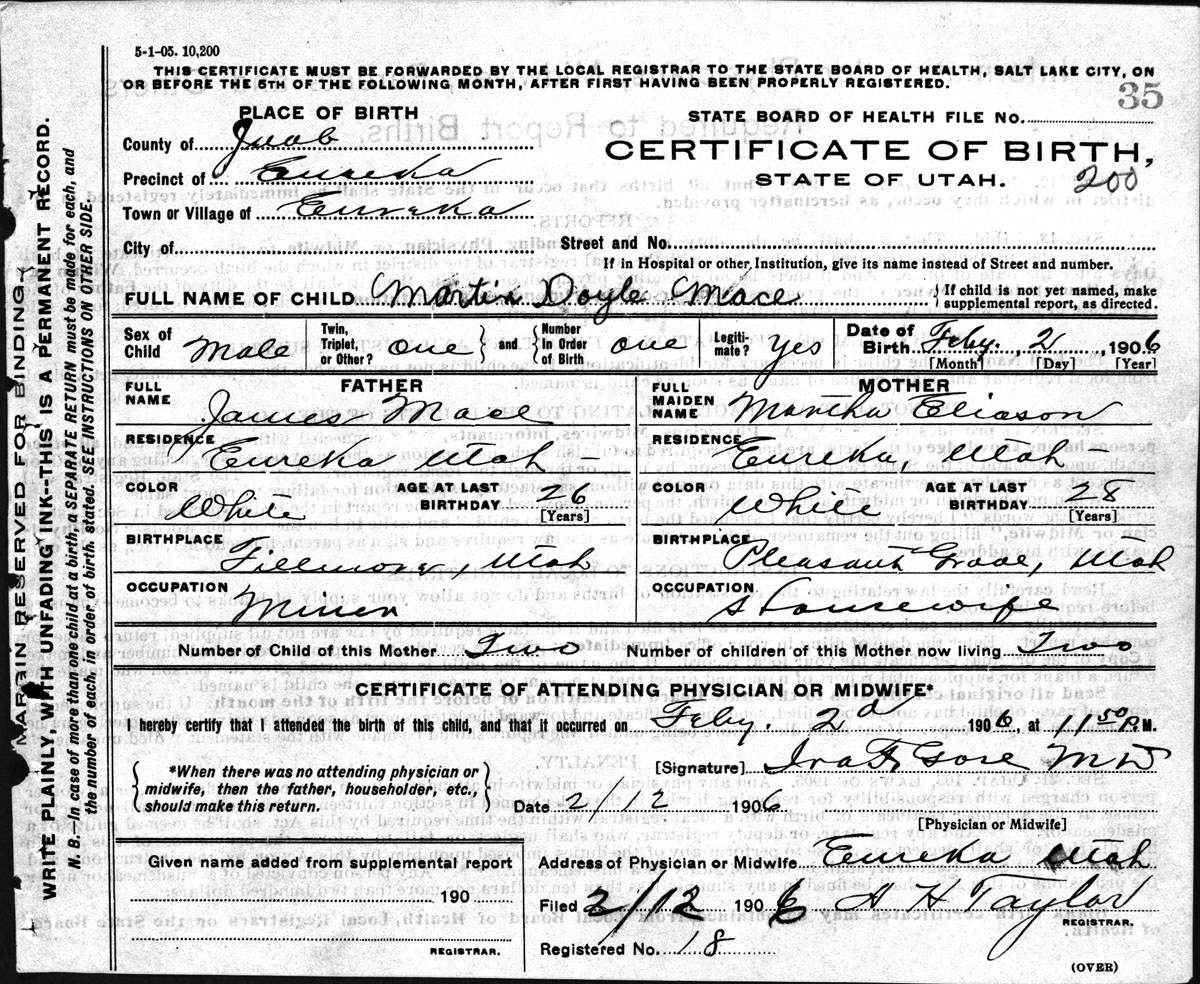 5-1-05. 10,200
THIS CERTIFICATE MUST BE FORWARDED BY THE LOCAL REGISTRAR TO THE STATE BOARD OF HEALTH, SALT LAKE CITY, ON
OR BEFORE THE 5TH OF THE FOLLOWING MONTH, AFTER FIRST HAVING BEEN PROPERLY REGISTERED.
35
PLACE OF BIRTH
STATE BOARD OF HEALTH FILE No.
County of Juab
CERTIFICATE OF BIRTH,
Precinct of Eureka
STATE OF UTAH. 200
Town or Village of Eureka
City of Street and No.
If in Hospital or other Institution, give its name instead of Street and number.
FULL NAME OF CHILD Martin Doyle Mace { If child is not yet named, make supplemental report, as directed.
Sex of Child Male Twin, Triplet, or Other? one } and { Number In Order of Birth one Legitimate? yes Date of Birth Feby. 2, 1906
[Month] [Day] [Year]
FATHER MOTHER
FULL NAME James Mace FULL MAIDEN NAME Martha Eliason
RESIDENCE Eureka Utah RESIDENCE Eureka, Utah
COLOR White AGE AT LAST BIRTHDAY 26 [Years] COLOR White AGE AT LAST BIRTHDAY 28 [Years]
BIRTHPLACE Fillmore, Utah BIRTHPLACE Pleasant Grove, Utah
OCCUPATION Miner OCCUPATION Housewife
Number of Child of this Mother Two Number of children of this Mother now living Two
CERTIFICATE OF ATTENDING PHYSICIAN OR MIDWIFE*
I hereby certify that I attended the birth of this child, and that it occurred on Feby. 2d 1906, at 11 50 P.M.
{ *When there was no attending physician or midwife, then the father, householder, etc., should make this return. }
[Signature] Ira Gore MD
Date 2/12 1906.
[Physician or Midwife]
Given name added from supplemental report
190
REGISTRAR.
Address of Physician or Midwife Eureka Utah
Filed 2/12 1906 A H Taylor
REGISTRAR.
Registered No. 18
(OVER)
MARGIN RESERVED FOR BINDING.
WRITE PLAINLY, WITH UNFADING INK--THIS IS A PERMANENT RECORD.
N. B.—In case of more than one child at a birth, a SEPARATE RETURN must be made for each, and
the number of each, in order of birth, stated. SEE INSTRUCTIONS ON OTHER SIDE.